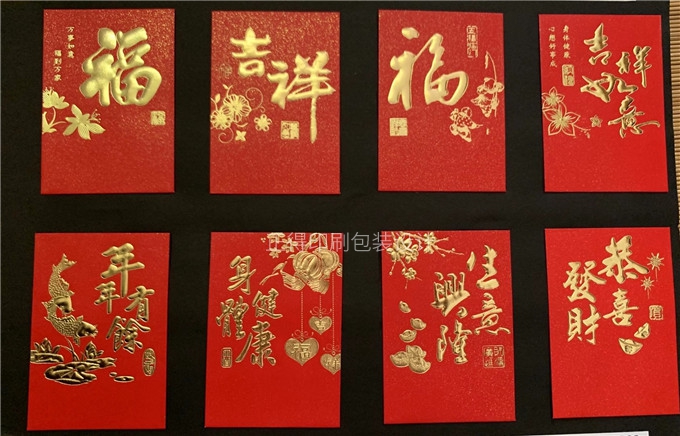 万事如意
福到万家
福
吉祥
福
身体健康
心想好事成
吉祥
如意
年年
有餘
身體
健康
福
生意
興隆
恭喜
發財
正得印刷包装设计